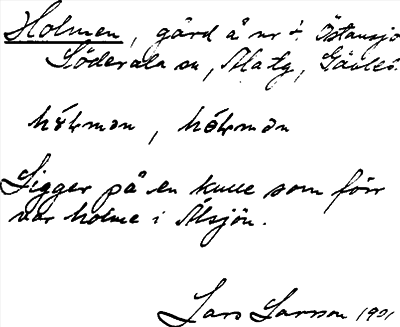 Holmen, gård å nr Östansjö
Söderala sn, Ala tg, Gävleb.
Ligger på en kulle som förr
var holme i Ålsjön.
Lars Larsson 1901